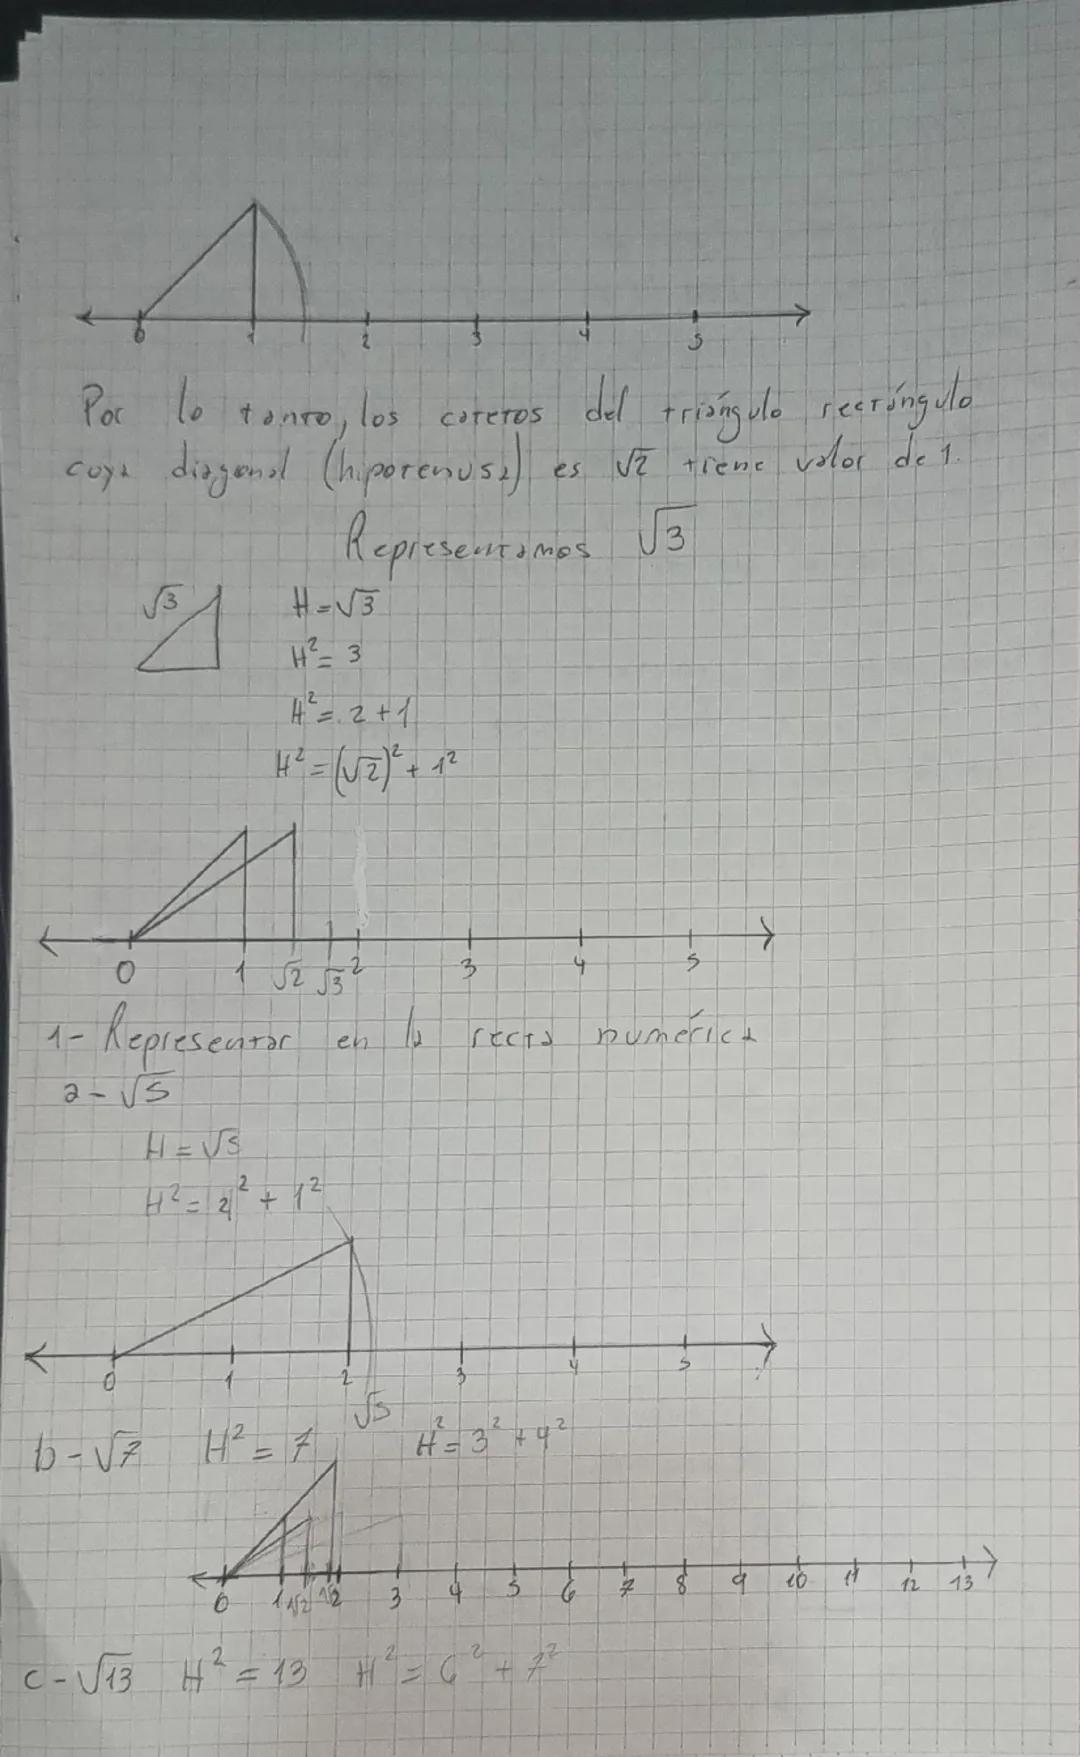 0 1 2 3 4 5
Por lo tanto, los catetos del triángulo rectángulo
cuya diagonal (hipotenusa) es √2 tiene valor de 1.
Representamos √3
√3 H=√3
H²= 3
H²= 2+1
H²=(√2)²+ 1²
0 1 √2 √3 2 3 4 5
1- Representar en la recta numérica
a- √5
H = √5
H²= 2² + 1²
0 1 2 3 4 5
√5
b- √7 H² = 7 H²= 3² + 4²
0 1 √2 2 3 4 5 6 7 8 9 10 11 12 13
c- √13 H² = 13 H² = 6² + 7²